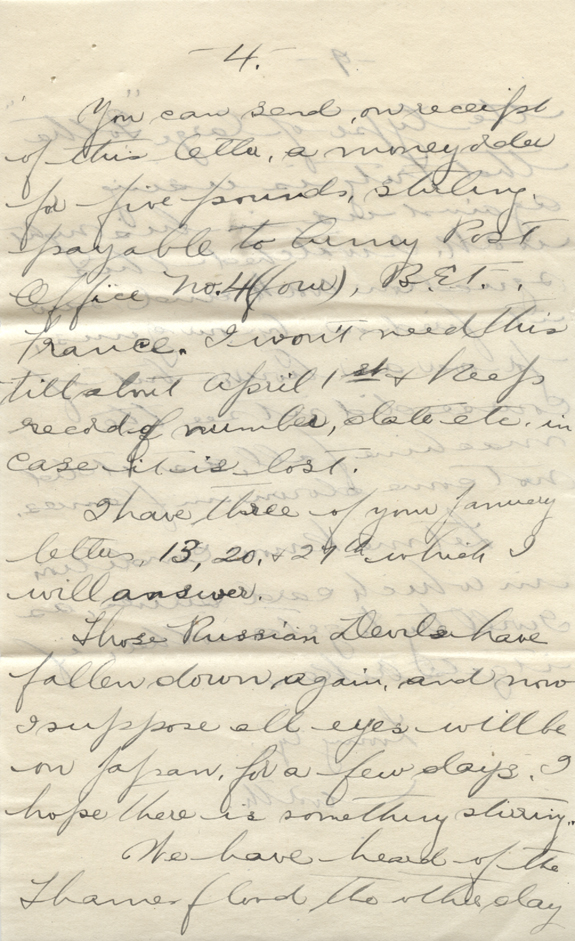 - 4. -
You can send, on receipt
of this letter, a money order
for five pounds, sterling,
payable to Army Post
Office No. 4 (four), B.E.F.,
France. I won't need this
till about April 1st & keep
record of number, date etc. in
case it is lost.
I have three of your January
letters, 13, 20, & 27th which I
will answer.
Those Russian Devils have
fallen down again, and now
I suppose all eyes will be
on Japan, for a few days. I
hope there is something stirring.
We have heard of the
Thames flood the other day